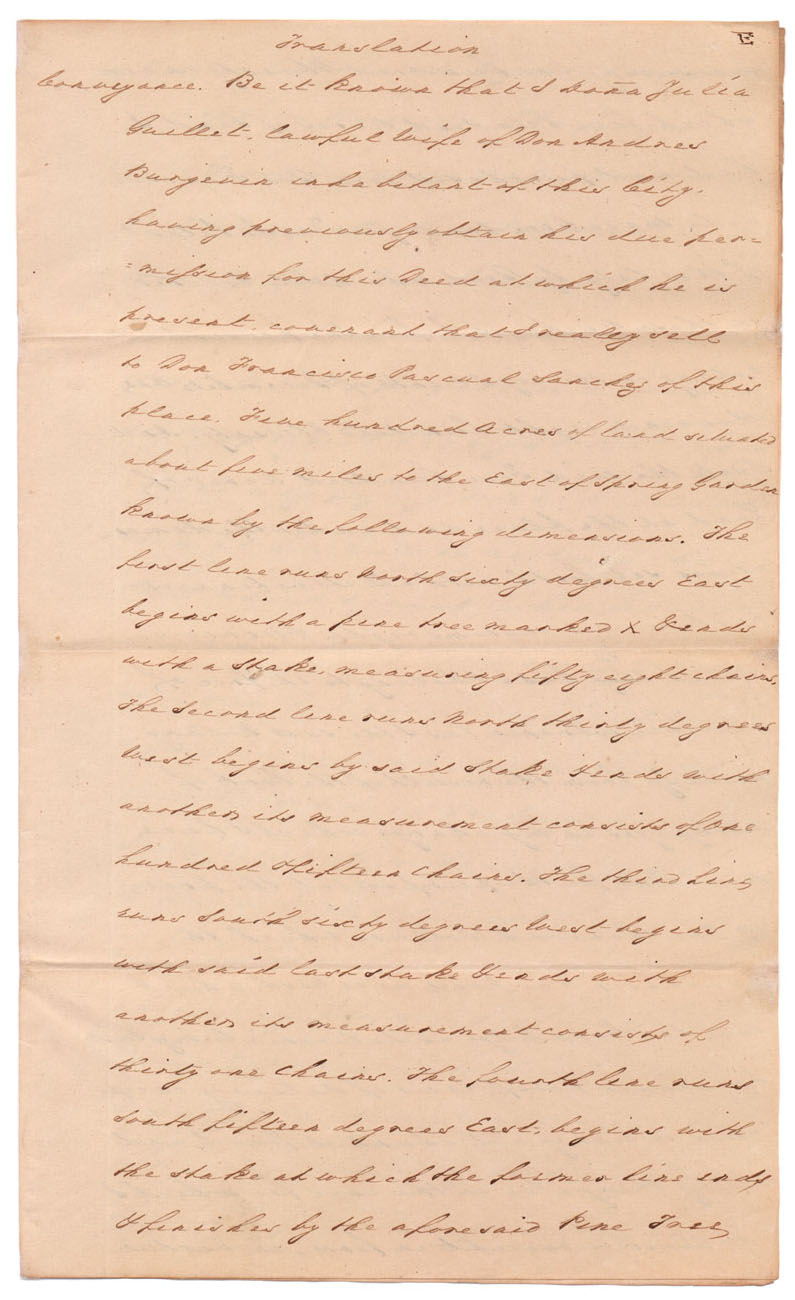 E
Translation
Conveyance. Be it known that I Doña Julia
Guillet, lawful Wife of Don Andres
Burgevin inhabitant of this City,
having previously obtain his due per=
=mission for this Deed at which he is
present, covenant that I really sell
to Don Francisco Pascual Sanchez of this
place, Five hundred Acres of land situated
about five miles to the East of Spring Garden
known by the following dimensions. The
first line runs North sixty degrees East
begins with a pine tree marked X & ends
with a Stake, measuring fifty eight chains,
The Second line runs North thirty degrees
West begins by said Stake & ends with
another, its measurement consists of One
hundred & fifteen Chains. The third Line,
runs South sixty degrees West begins
with said last stake & ends with
another, its measurement consists of
thirty one Chains. The fourth line runs
South fifteen degrees East, begins with
the stake at which the former line ends,
& finishes by the aforesaid Pine Tree,